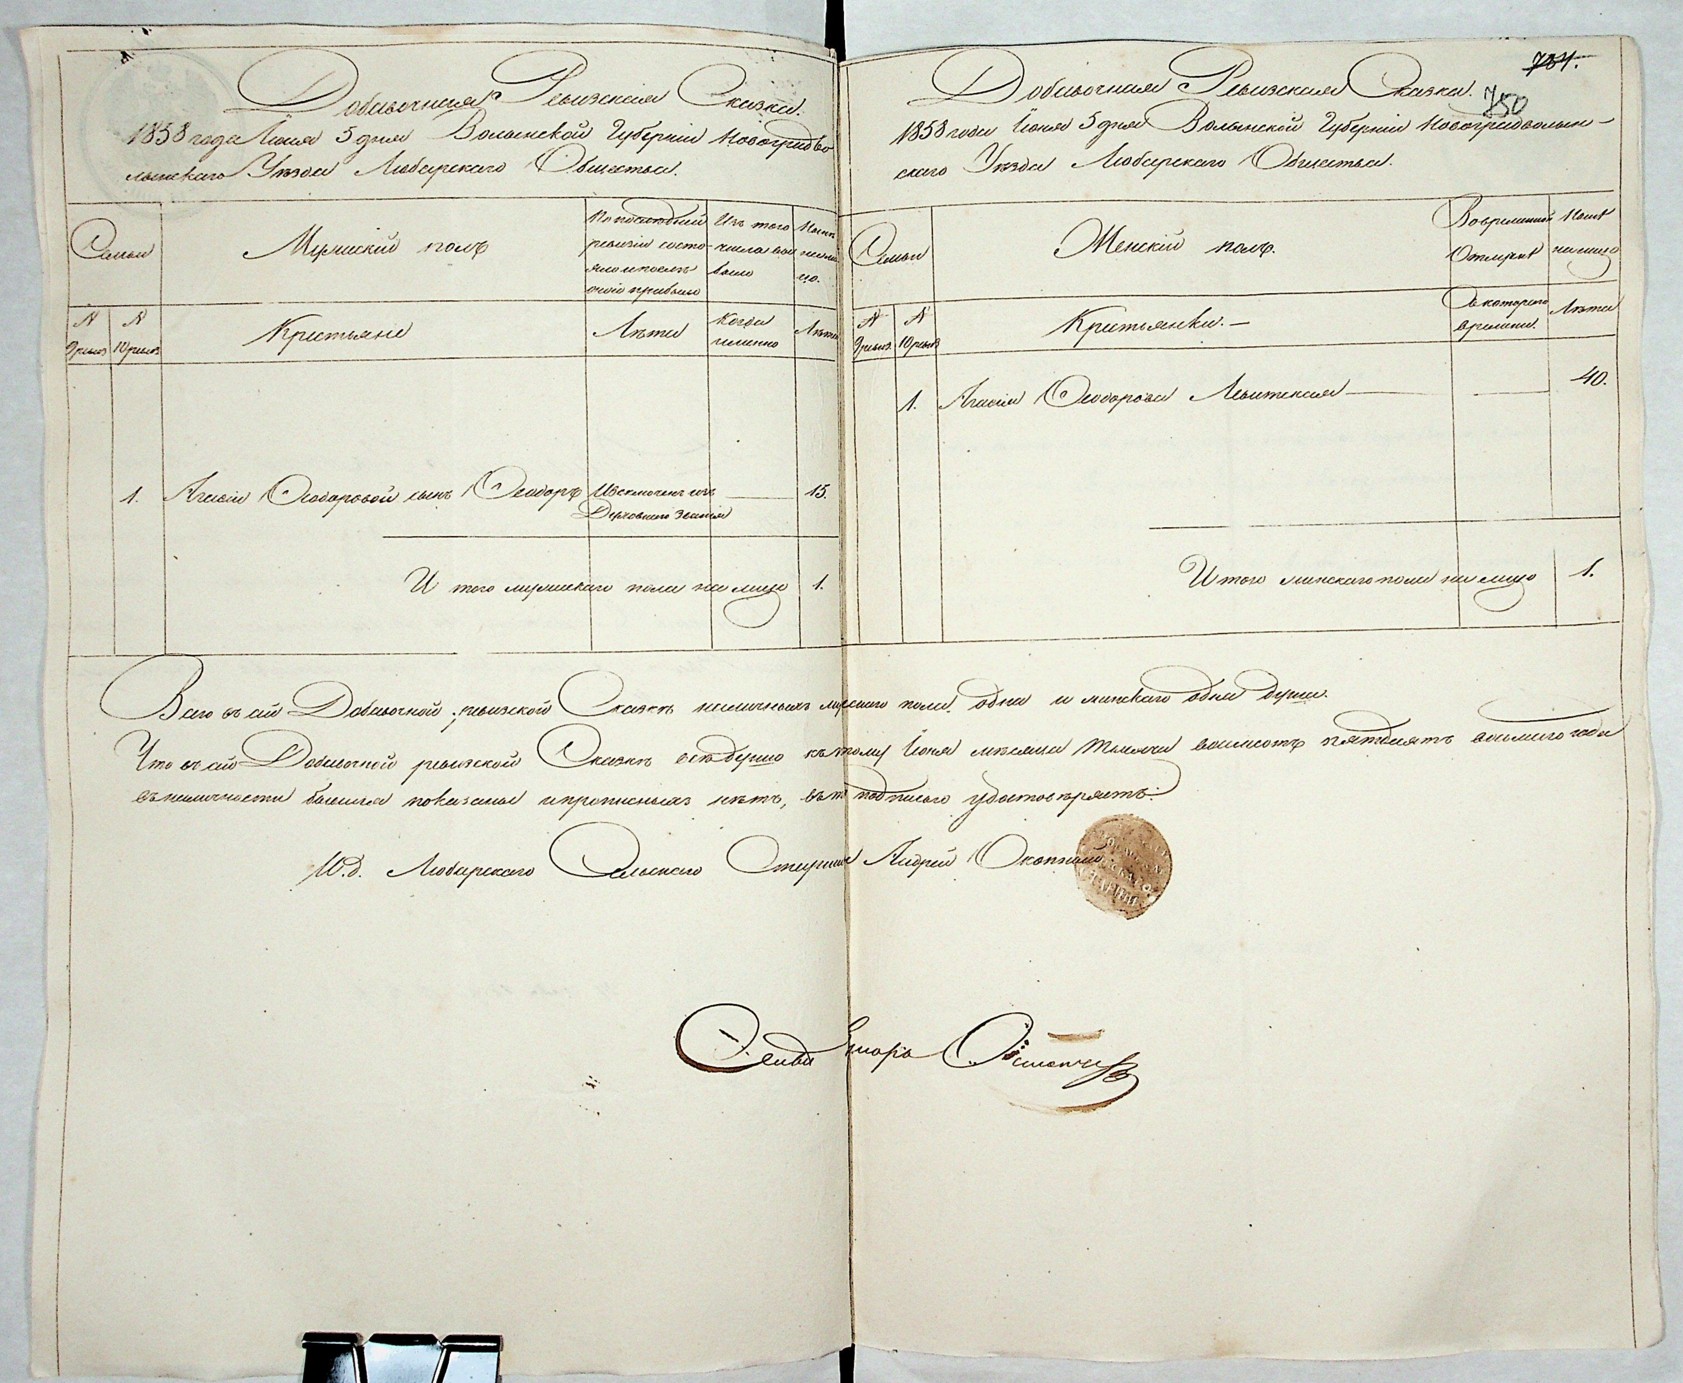 Добавочная Ревизская Сказка.
1858 года Іюня 5 дня Волынской Губерніи Новоградво
лынскаго Уѣзда Любарскаго Общества.
Семьи
Мужескій полъ
По последней
ревизіи состо-
яло и послѣ
оной прибыло
Изъ того
числа вы
было
Ныне
на ли
цо.
№
9 ревиз
№
10 ревиз
Крестьяне
Лѣта
Когда
именно
Лѣта
1. Агафіи Ѳеодоровой сынъ Ѳеодоръ Изключенъ изъ 15.
Духовнаго Званія
И того мужескаго пола на лицо 1.
734.
750
Добавочная Ревизская Сказка.
1858 года Іюня 5 дня Волынской Губерніи Новоградволын-
скаго Уѣзда Любарскаго Общества.
Семьи
Женскій полъ.
Во временной
Отлучкѣ
Нынѣ
на лицо
№
9 ревиз
№
10 ревиз
Крестьянки.
Съ котораго
времени.
Лѣта
1. Агафія Ѳеодорова Левитская 40.
И того женскаго пола на лицо 1.
Всего въ сей Добавочной ревизской Сказкѣ наличныхъ мужскаго пола одна и женскаго одна душа.
Что въ сей Добавочной ревизской Сказкѣ всѣ души къ тому Іюня мѣсяца тысяча восемсотъ пятдесятъ восьмаго года
въ наличности бывшія показаны и прописныхъ нѣтъ, въ томъ подписью удостовѣряетъ:
И.Д. Любарскаго Сельскаго Старшины Андрей Окопный